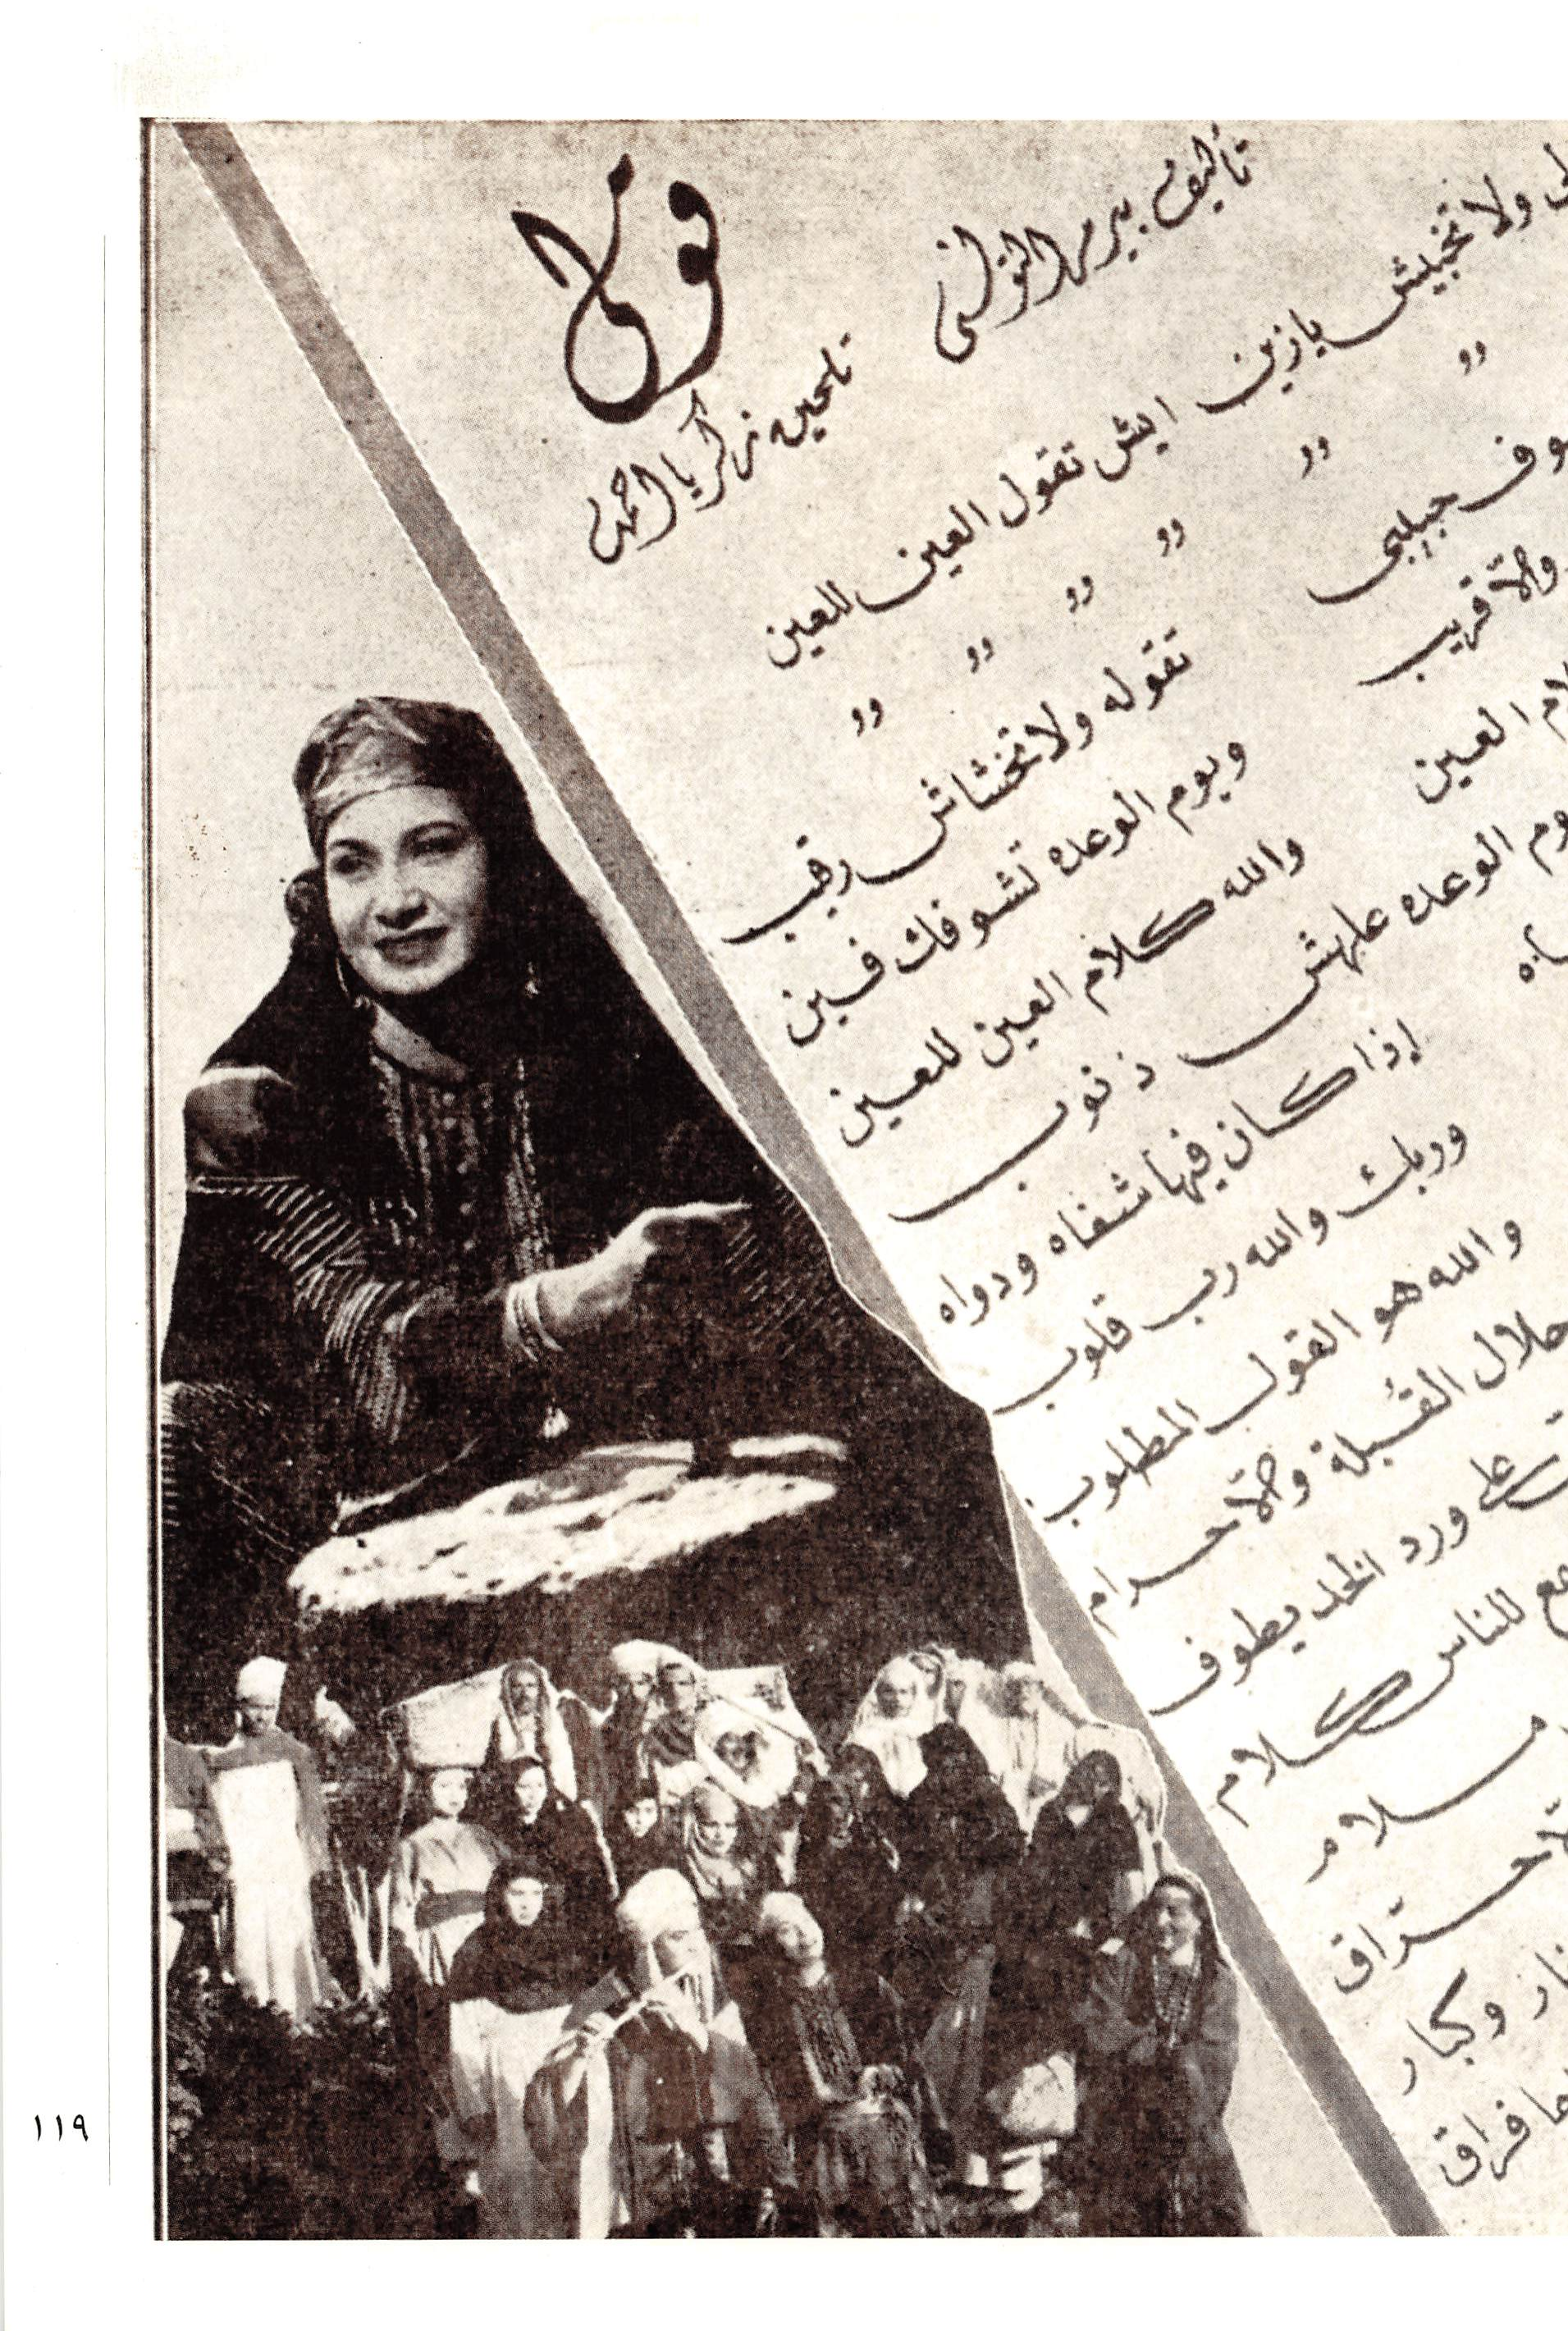 قولى
تأليف بيرم التونسى
تلحين زكريا احمد
ولا تخبيش يا زين ايش تقول العين للعين
" " " " " "
حبيبى تقوله ولا تخشاش رقيب
والا قريب ويوم الوعده تشوفك فين
العين والله كلام العين للعين
الوعده علهش ذنوب
إذا كان فيها شفاه ودواه
وربك والله رب قلوب
والله هو القول المطلوب
حلال القبلة والا حرام
على ورد الخد يطوف
للناس كلام
سلام
حراق
وكبار
فراق
١١٩